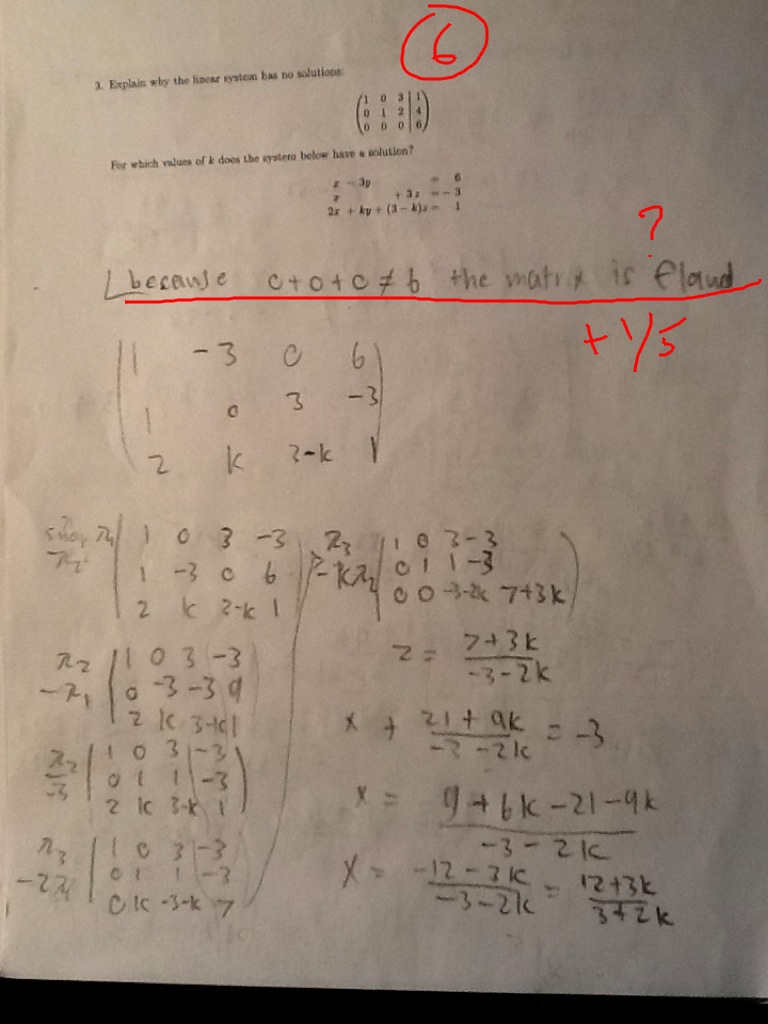 6
3. Explain why the linear system has no solutions:
1 0 3 | 1
0 1 2 | 4
0 0 0 | 6
For which values of k does the system below have a solution?
x - 3y = 6
x + 3z = -3
2x + ky + (3 - k)z = 1
?
because 0+0+0 ≠ 6 the matrix is flawd
+ 1/5
1 -3 0 6
1 0 3 -3
2 k 3-k 1
swap r1 r2
1 0 3 -3
1 -3 0 6
2 k 3-k 1
r2 - r1
1 0 3 | -3
0 -3 -3 9
2 k 3-k | 1
r2 / -3
1 0 3 | -3
0 1 1 | -3
2 k 3-k 1
r3 - 2r1
1 0 3 | -3
0 1 1 | -3
0 k -3-k 7
r3 - kr2
1 0 3 -3
0 1 1 -3
0 0 -3-2k 7+3k
z = 7+3k / -3-2k
x + 21+9k / -3-2k = -3
x = 9+6k-21-9k / -3-2k
x = -12-3k / -3-2k = 12+3k / 3+2k